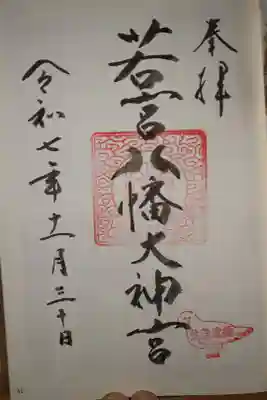 奉拝
若宮八幡大神宮
令和七年十一月三十日